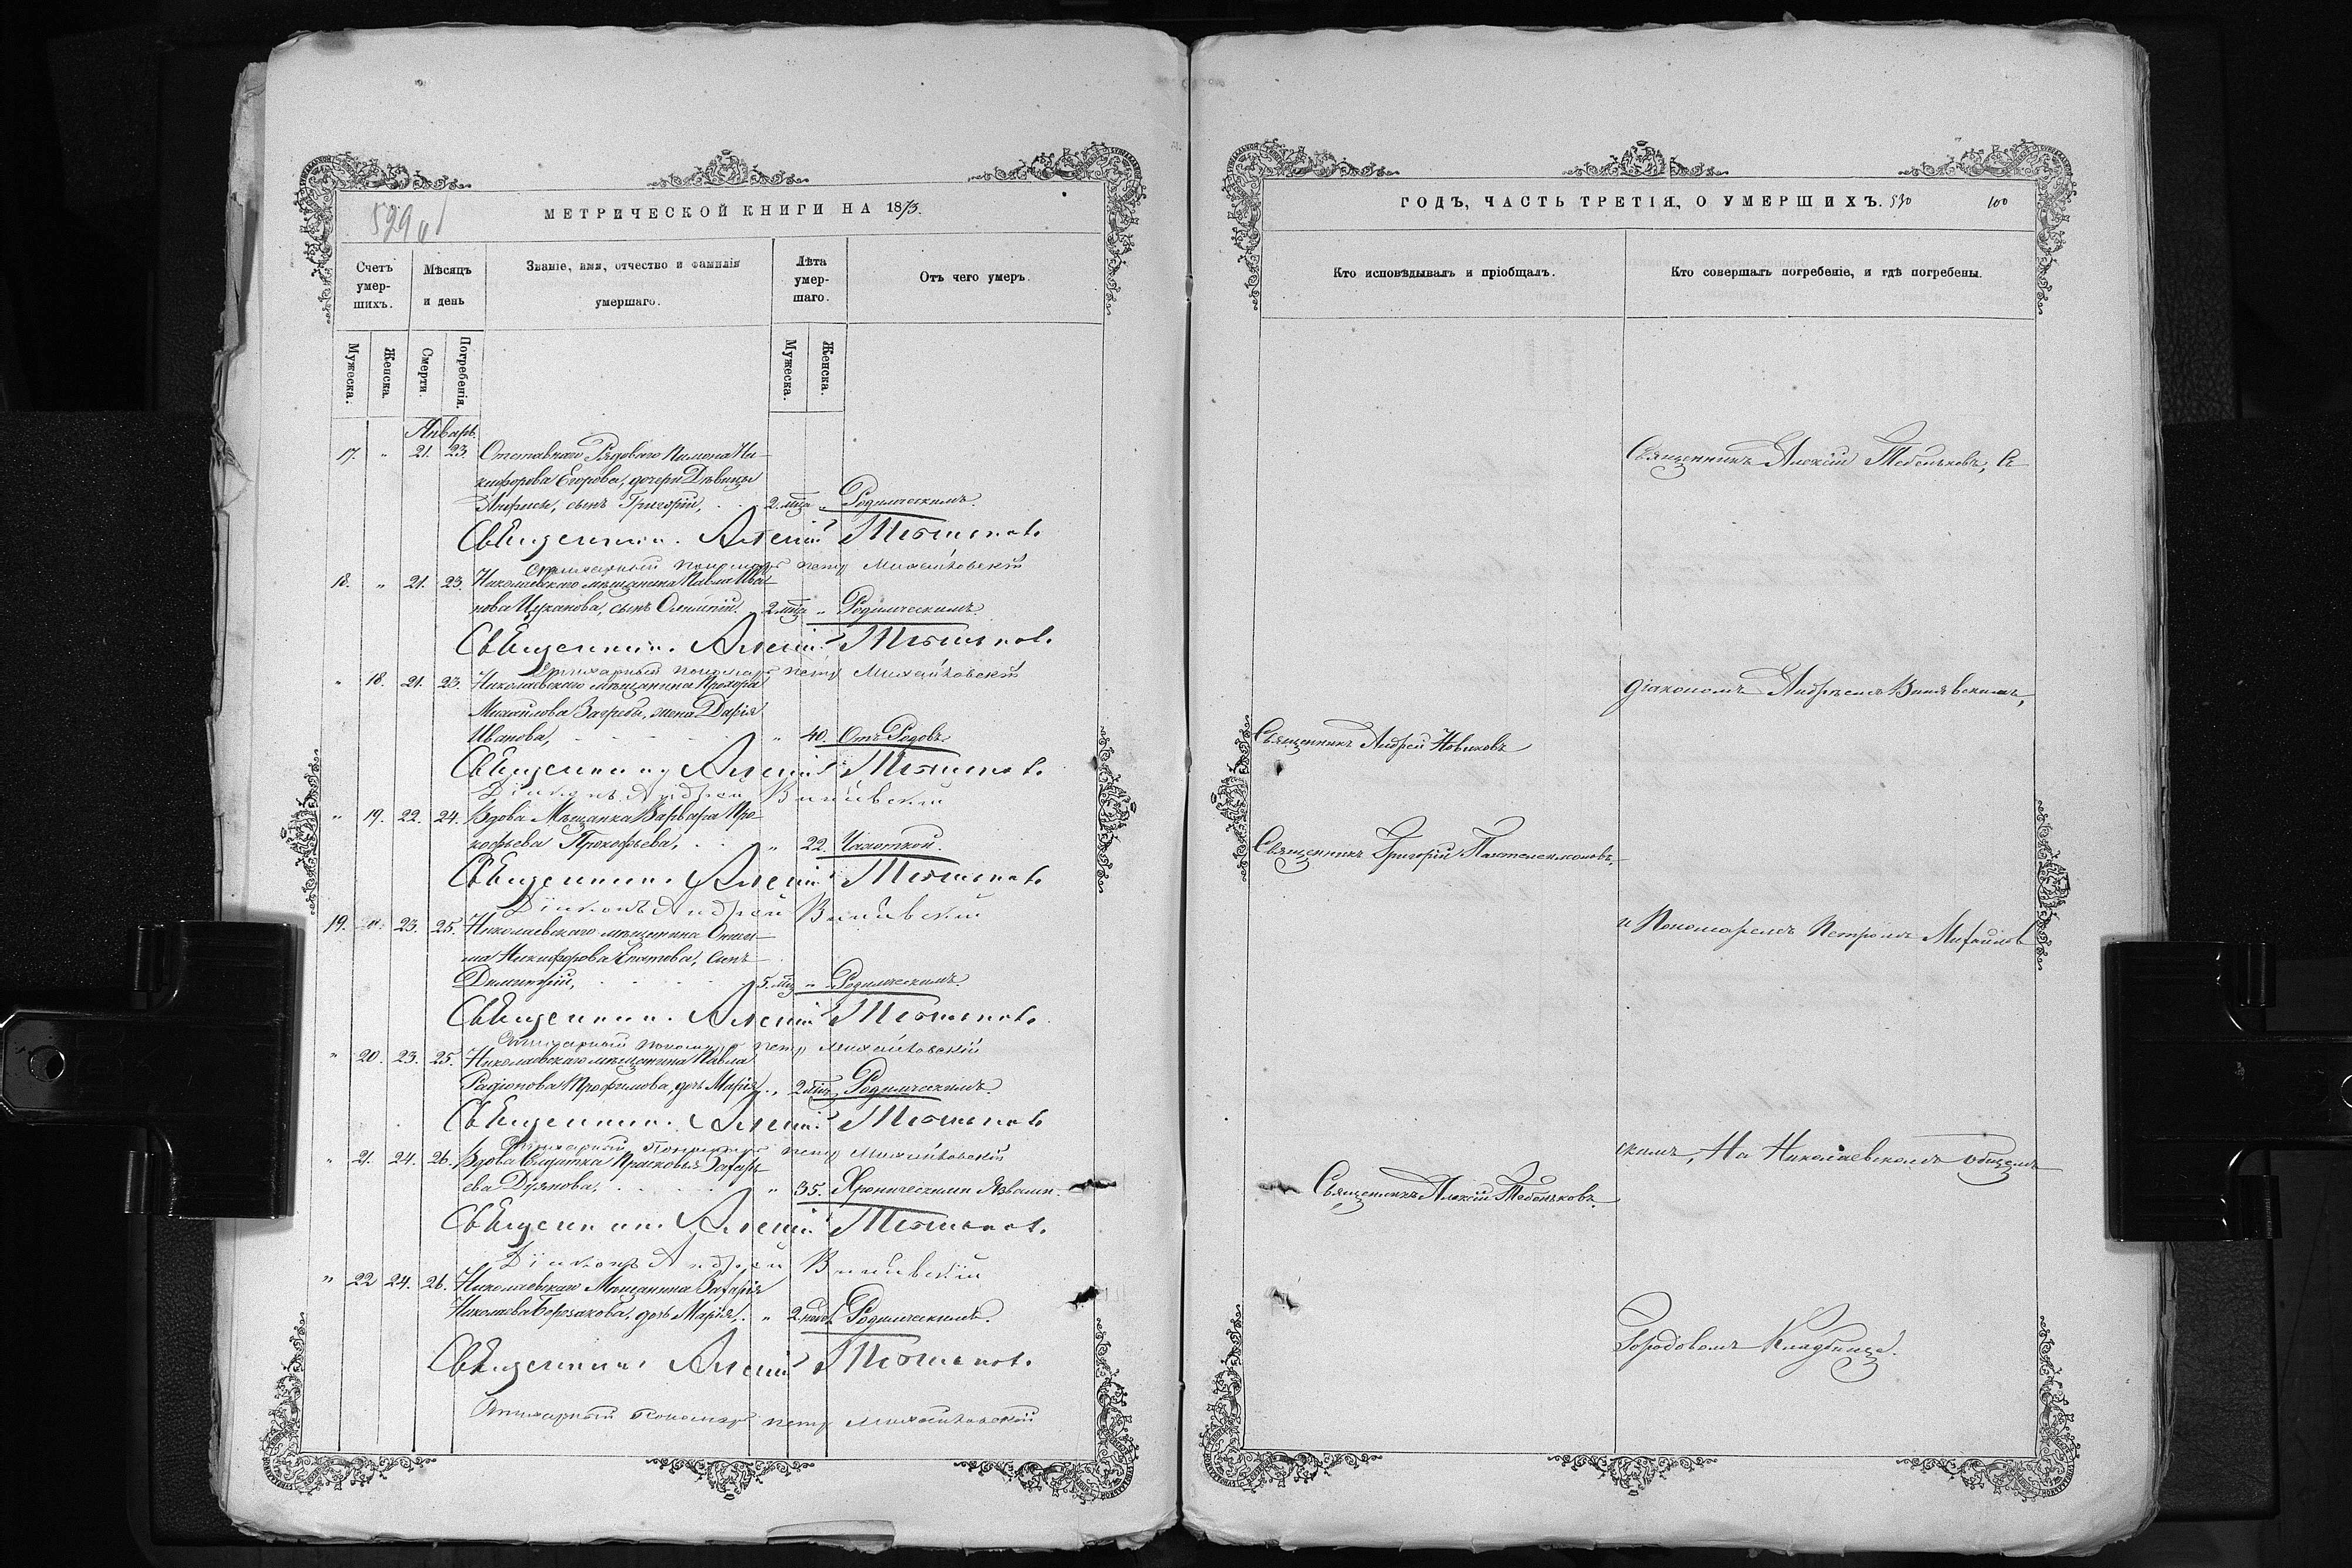 529 об
МЕТРИЧЕСКОЙ КНИГИ НА 1873.
Счетъ умер-шихъ.
Мѣсяцъ и день
Званіе, имя, отчество и фамилія умершаго.
Лѣта умер-шаго.
Отъ чего умеръ.
Мужеска.
Женска.
Смерти.
Погребенія.
Мужеска.
Женска.
Январь.
17. " 21. 23. Отставнаго Рядоваго Пимона Ни-
кифорова Егорова, дочери Дѣвицы
Анфисы, сынъ Григорій, 2 мца " Родимческимъ.
Священникъ Алексій Тебеньковъ
Стихарный пономарь Петръ Михайловскій
18. " 21. 23. Николаевскаго мѣщанина Павла Ива-
нова Цуканова, сынъ 2 мца " Родимческимъ.
Священникъ Алексій Тебеньковъ
Стихарный пономарь Петръ Михайловскій
" 18. 21. 23. Николаевскаго мѣщанина Прохора
Михайлова Загребы, жена Дарія
Иванова, " 40. Отъ Родовъ.
Священникъ Алексій Тебеньковъ
Діаконъ Андрей
" 19. 22. 24. Вдова Мѣщанка Варвара Про-
кофьева Прокофьева, " 22. Чахоткой.
Священникъ Алексій Тебеньковъ
Діаконъ Андрей
19. " 23. 25. Николаевскаго мѣщанина
ма Никифорова Ипатова, сынъ
Димитрій, 5 мц " Родимческимъ.
Священникъ Алексій Тебеньковъ
Стихарный пономарь Петръ Михайловскій
" 20. 23. 25. Николаевскаго мѣщанина Павла
Радіонова Трофимова, дочь Марія, " 2 мца Родимческимъ.
Священникъ Алексій Тебеньковъ
Стихарный Пономарь Петръ Михайловскій
" 21. 24. 26. Вдова Солдатка Прасковья Захарь-
ева " 35. Хроническими Язвами.
Священникъ Алексій Тебеньковъ
Діаконъ Андрей
" 22 24. 26. Николаевскаго Мѣщанина Захарія
Николаева дочь Марія, " 2 нед. Родимческимъ.
Священникъ Алексій Тебеньковъ
Стихарный пономарь Петръ Михайловскій
ГОДЪ, ЧАСТЬ ТРЕТІЯ, О УМЕРШИХЪ. 530 100
Кто исповѣдывалъ и пріобщалъ.
Кто совершалъ погребеніе, и гдѣ погребены.
Священникъ Алексій Тебеньковъ, съ
діакономъ Андреемъ
Священникъ Андрей Новиковъ
Священникъ Григорій Пантелеимоновъ
и Пономаремъ Петромъ Михайлов
скимъ, На Николаевскомъ общемъ
Священникъ Алексій Тебеньковъ.
Городовомъ Кладбищѣ.